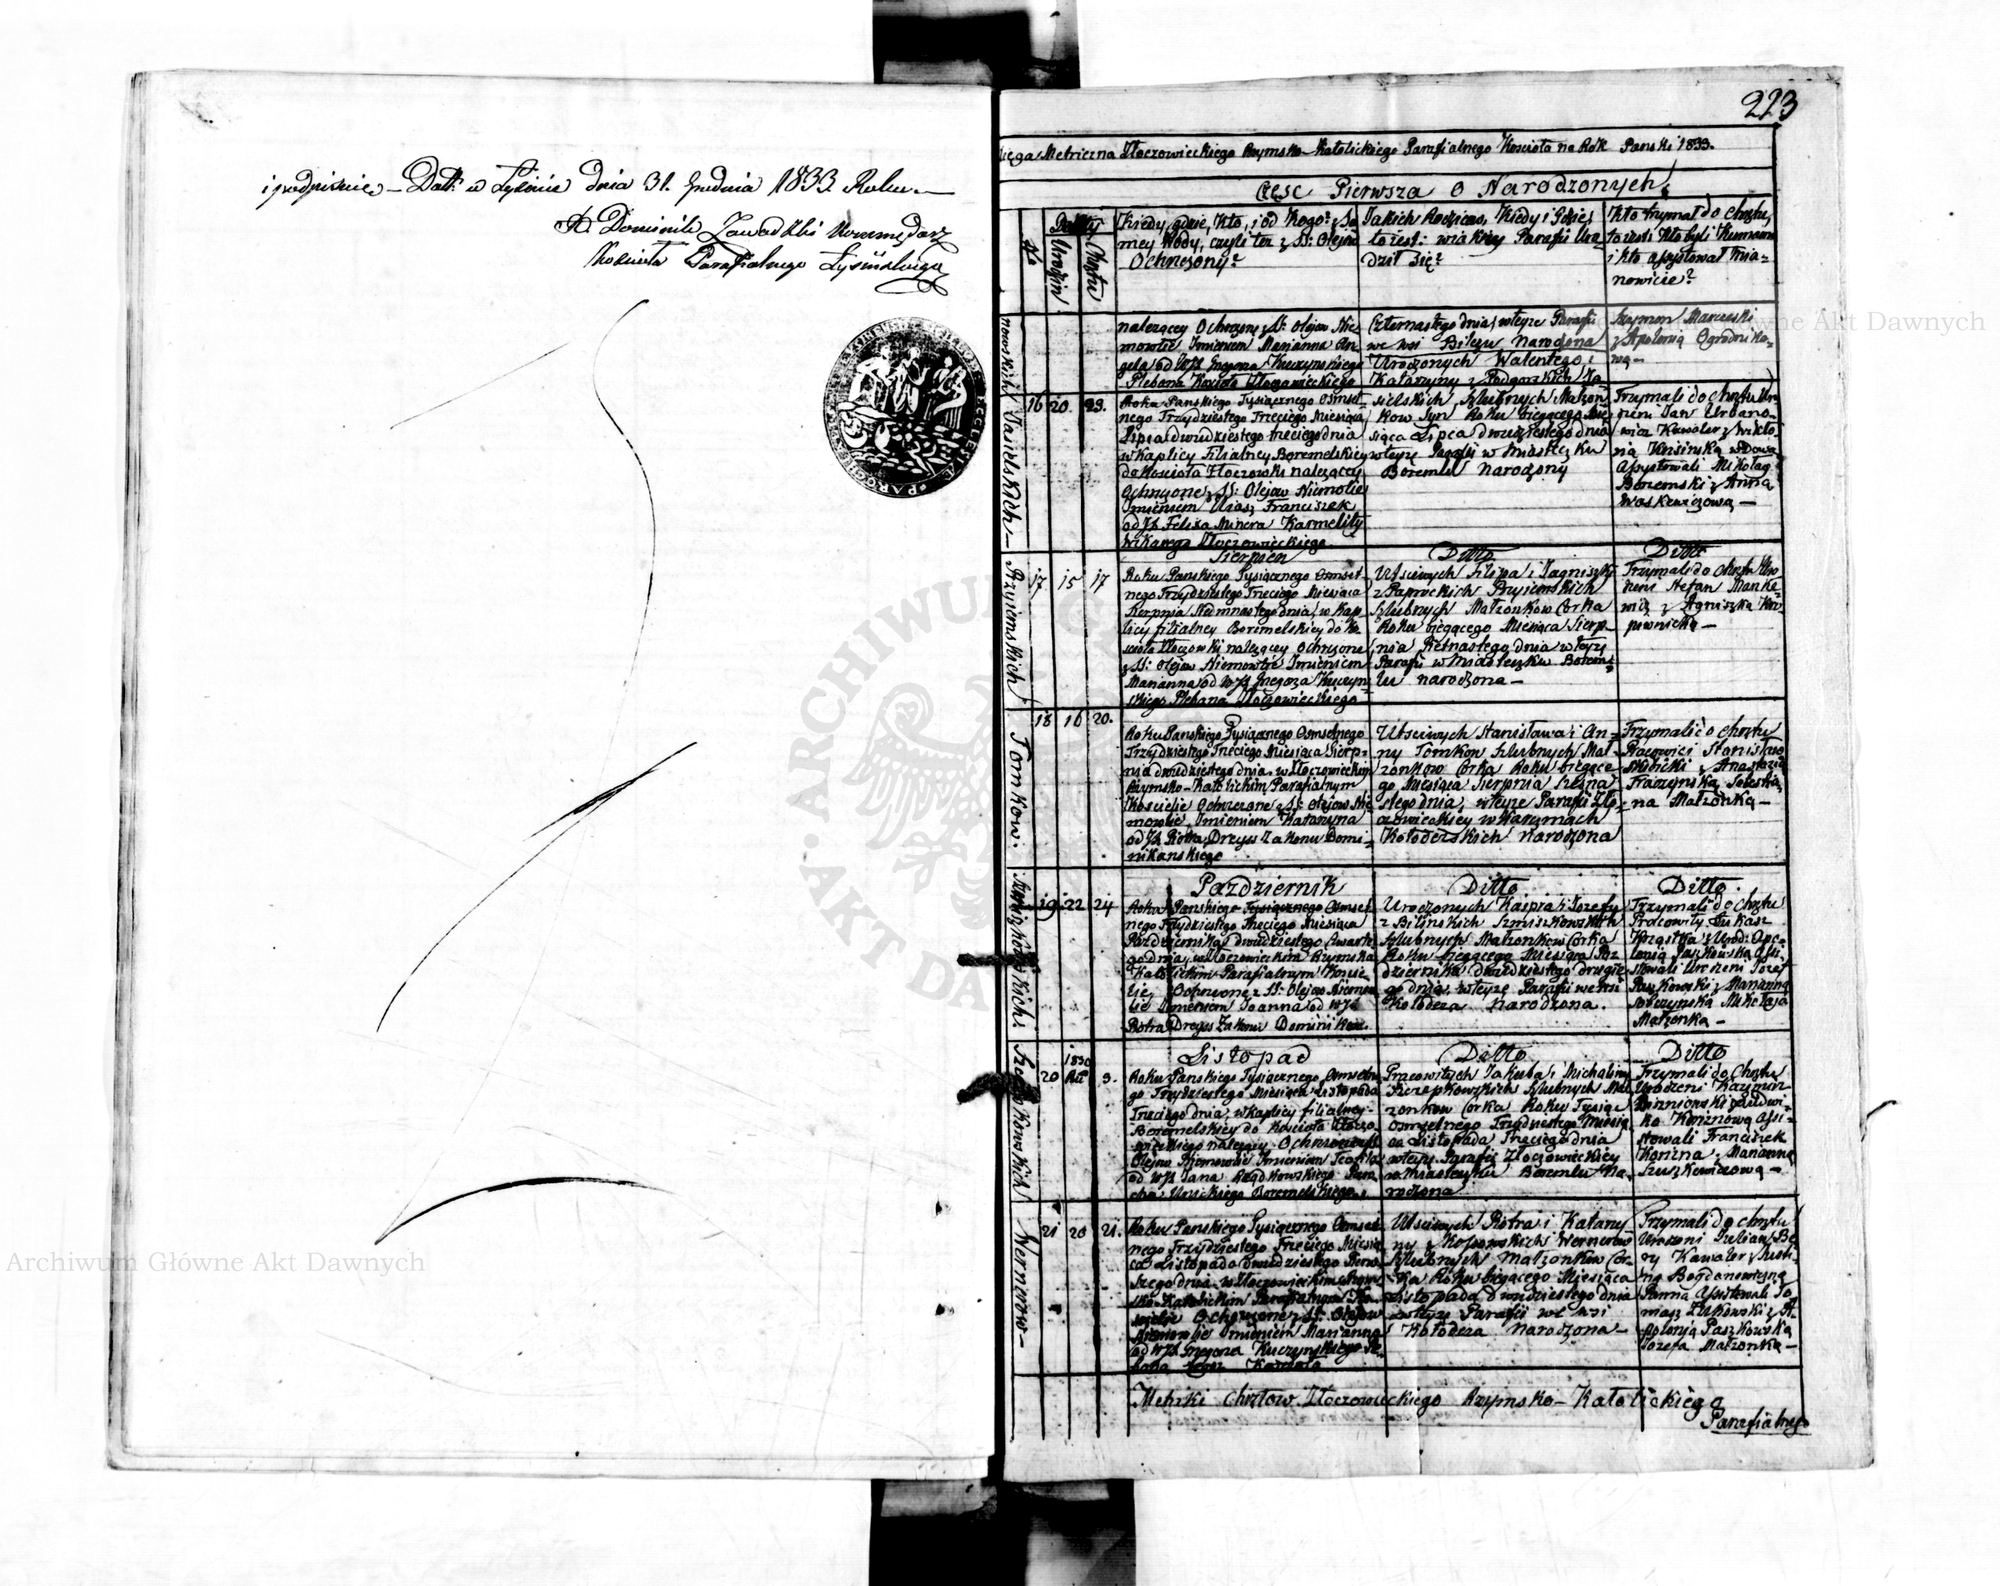 i podpisuię – Datt: w dnia 31. Grudnia 1833. Roku. –
X. Dominik Zawadzki
Kościoła Parafialnego
223
Księga Metriczna Złoczowieckiego Rzymsko-Katolickiego Parafialnego Kościoła na Rok Panski 1833.
Częsc Pierwsza o Narodzonych
No
Daty
Urodzin
Chrztu
Kiedy, gdzie, Kto, i od Kogo? z Sa
mey Wody, czyli tez z SS: Oleyów
Ochrczony?
Jakich Rodzicow, Kiedy i gdzie,
to iest: w iakiey Parafii Uro
dził się?
Kto trzymał do chrztu,
to iest: kto byli Kumami
i kto assystował mia=
nowicie?
nalezącey Ochrzcone z SS: Olejow Nie
mowlie Imieniem Marianna An
gela od WJX Grzegorza Kuczynskiego
Plebana Kościoła Złoczowieckiego
Czternastego dnia, w teyze Parafii
we wsi narodzona
Urodzonych Walentego i
Katarzyny z Podgorskich Ja
Szymon Marceski
z Apolonią Ogrodniko=
wą –
Jasielskich –
16
20.
23.
Roku Panskiego Tysiącznego Osmset=
nego Trzydziestego Trzeciego Miesiąca
Lipca dwudziestego trzeciego dnia
w kaplicy Filialney Boremelskiey
do Kościoła Złoczowski nalezącey
Ochrzcone z SS: Olejow Niemowlie
Imieniem Franciszek
od JX Felixa Minera Karmelity
Wikarego Złoczowieckiego
sielskich Szlubnych Małzon=
kow Syn Roku biegącego Mie
siąca Lipca dwudziestego dnia
w teyze Parafii w Miasteczku
Boremlu Narodzony
Trzymali do chrztu Uro
dzeni Jan Urbano=
wicz Kawaler z Wikto
assystowali Mikołay
Boremski z Anną
Waskiewiczową –
Sierpien
Ditto
Ditto
Przyiemskich
17
15
17
Roku Panskiego Tysiącznego Osmset=
nego Trzydziestego Trzeciego Miesiąca
Sierpnia Siedmnastego dnia, w kap=
licy filialney Boremelskiey do Ko
scioła Złoczowski nalezącey Ochrzcone
z SS: Olejow Niemowlie Imieniem
Marianna od WJX Grzegorza Kuczyn=
skiego Plebana Złoczowieckiego
Uczciwych Filipa i Jagniszki
z Paprockich Przyiemskich
Szlubnych Małzonkow Corka
Roku biegącego Miesiąca Sierp=
nia Pietnastego dnia w teyze
Parafii w Miasteczku Borem=
lu narodzona –
Trzymali do chrztu Uro
dzeni Stefan Manke=
wicz z Agniszką
Tomkow.
18
16
20.
Roku Panskiego Tysiącznego Osmsetnego
Trzydziestego Trzeciego Miesiąca Sierp=
nia dwudziestego dnia w Złoczowieckim
Rzymsko-Katolickim Parafialnym
Kościele Ochrzcone z SS: Olejow Nie
mowlie Imieniem Katarzyna
od JX Piotra Dreyss Zakonu Domi=
nikanskiego
Uczciwych Stanisława i An=
ny Tomkow Szlubnych Mał=
zonkow Corka Roku biegące
go Miesiąca Sierpnia Szesna
stego dnia, w teyze Parafii Zło=
czowieckiey w Karczmach
Kołodezskich narodzona
Trzymali do chrztu
Pracowici Stanisław
Skibicki z Anastazią
na Małzonką –
Pazdziernik
Ditto
Ditto
19
22
24
Roku Panskiego Tysiącznego Osmset
nego Trzydziestego Trzeciego Miesiąca
Pazdziernika dwudziestego Czwarte
go dnia, w Złoczowieckim Rzymsko
Katolickim Parafialnym Koscie
le, Ochrzcone z SS: Olejow Niemow
lie Imieniem Joanna od WJX
Piotra Dreyss Zakonu Dominikan.
Urodzonych Kaspra i Jozefy
z Bilinskich
Szlubnych Małzonkow Corka
Roku biegącego Miesiąca Paz
dziernika dwudziestego drugie
go dnia, w teyze Parafii we wsi
Kołodeza narodzona.
Trzymali do chrztu
Pracowity Łukasz
Paszkowską assi=
stowali Urodzeni Jozef
Paszkowski z Marianną
Sobczynską Mikołaja
Małzonką –
Listopad
Ditto
Ditto
Szczepkowskich
20
1830
3.
Roku Panskiego Tysiącznego Osmsetne
go Trzydziestego Miesiąca Listopada
Trzeciego dnia, w kaplicy filialney
Boremelskiey do Kościoła Złoczo
wieckiego nalezącey Ochrzcone z SS
Olejow Niemowlie Imieniem Teofila
od WJX Jana Paro
cha Unickiego Boremelskiego
Pracowitych Jakuba i Michaliny
Szczepkowskich Szlubnych Mał
zonkow Corka Roku Tysiąc
Osmsetnego Trzydziestego Miesią
ca Listopada Trzeciego dnia
w teyze Parafii Złoczowieckiey
w Miasteczku Boremlu Na=
rodzona
Trzymali do Chrztu
Urodzeni Kazymirz
assi=
stowali Franciszek
Korzna z Marianną
Suszkewiczową –
Wernerow –
21
20
21.
Roku Panskiego Tysiącznego Osmset
nego Trzydziestego Trzeciego Miesią
ca Listopada dwudziestego Pierw
szego dnia w Złoczowieckim Rzym
sko-Katolickim Parafialnym Ko=
sciele Ochrzcone z SS: Olejow
Niemowlie Imieniem Marianna
od WJX Grzegorza Kuczynskiego Ple
bana
Uczciwych Piotra i Katarzy
ny z Kossowskich Wernerow
Szlubnych Małzonkow Cor=
ka Roku biegącego Miesiąca
Listopada dwudziestego dnia
w teyze Parafii we wsi
Kołodeza narodzona –
Trzymali do chrztu
Urodzeni Julian
Kawaler z Justi=
ną Bogdanowiczną
Panną assystowali To
masz Zukowski z A=
polonią Paszkowską
Jozefa Małzonką –
Metriki Chrztow Złoczowieckiego Rzymsko-Katolickiego
Parafialnego
ARCHIWUM GŁÓWNE AKT DAWNYCH
Archiwum Główne Akt Dawnych
Archiwum Główne Akt Dawnych